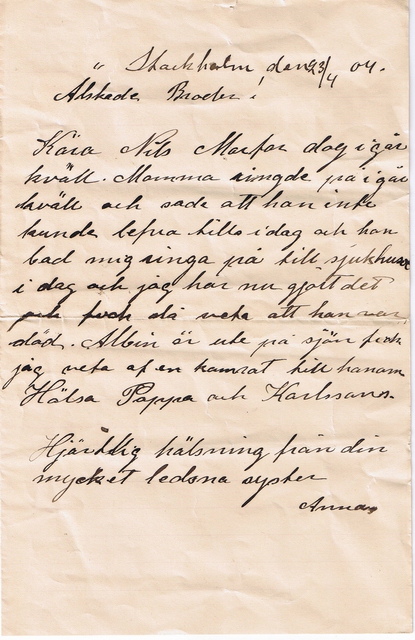 " Stockholm, den 23/4 04.
Älskade Broder!
Kära Nils Morfar dog i går
kväll. Mamma ringde på i går
kväll och sade att han inte
kunde lefva tills i dag och hon
bad mig ringa på till sjukhuset
i dag och jag har nu gjort det
och fick då veta att han var
död. Albin är ute på sjön fick
jag veta af en kamrat till honom
Hälsa Pappa och Karlssons.
Hjärtlig hälsning från din
mycket ledsna syster
Anna